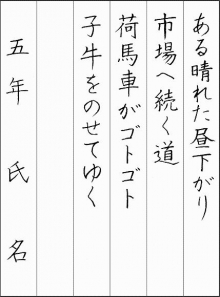 ある晴れた昼下がり
市場へ続く道
荷馬車がゴトゴト
子牛をのせてゆく
五年 氏名